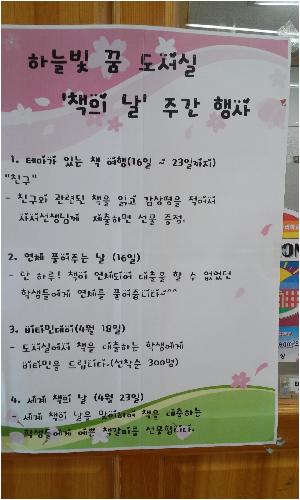 하늘빛 꿈 도서실
'책의 날' 주간 행사
1. 테마가 있는 책 여행(16일 ~ 23일까지)
"친구"
- 친구와 관련된 책을 읽고 감상평을 적어서
사서선생님께 제출하면 선물 증정.
2. 연체 풀어주는 날 (16일)
- 단 하루! 책이 연체되어 대출을 할 수 없었던
학생들에게 연체를 풀어줍니다~^^
3. 비타민데이(4월 18일)
- 도서실에서 책을 대출하는 학생에게
비타민을 드립니다.(선착순 300명)
4. 세계 책의 날 (4월 23일)
- 세계 책의 날을 맞이하여 책을 대출하는
학생들에게 예쁜 책갈피를 선물합니다.